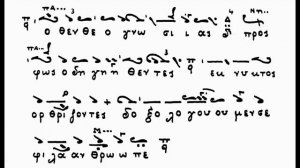 ο θεν θε ο γνω σι ι ας προς
φως ο δη γη θεν τες εκ νυκτος
ορ θρι ζοντες δο ξο λο γου ου μεν σε
φι λα αν θρω ω πε